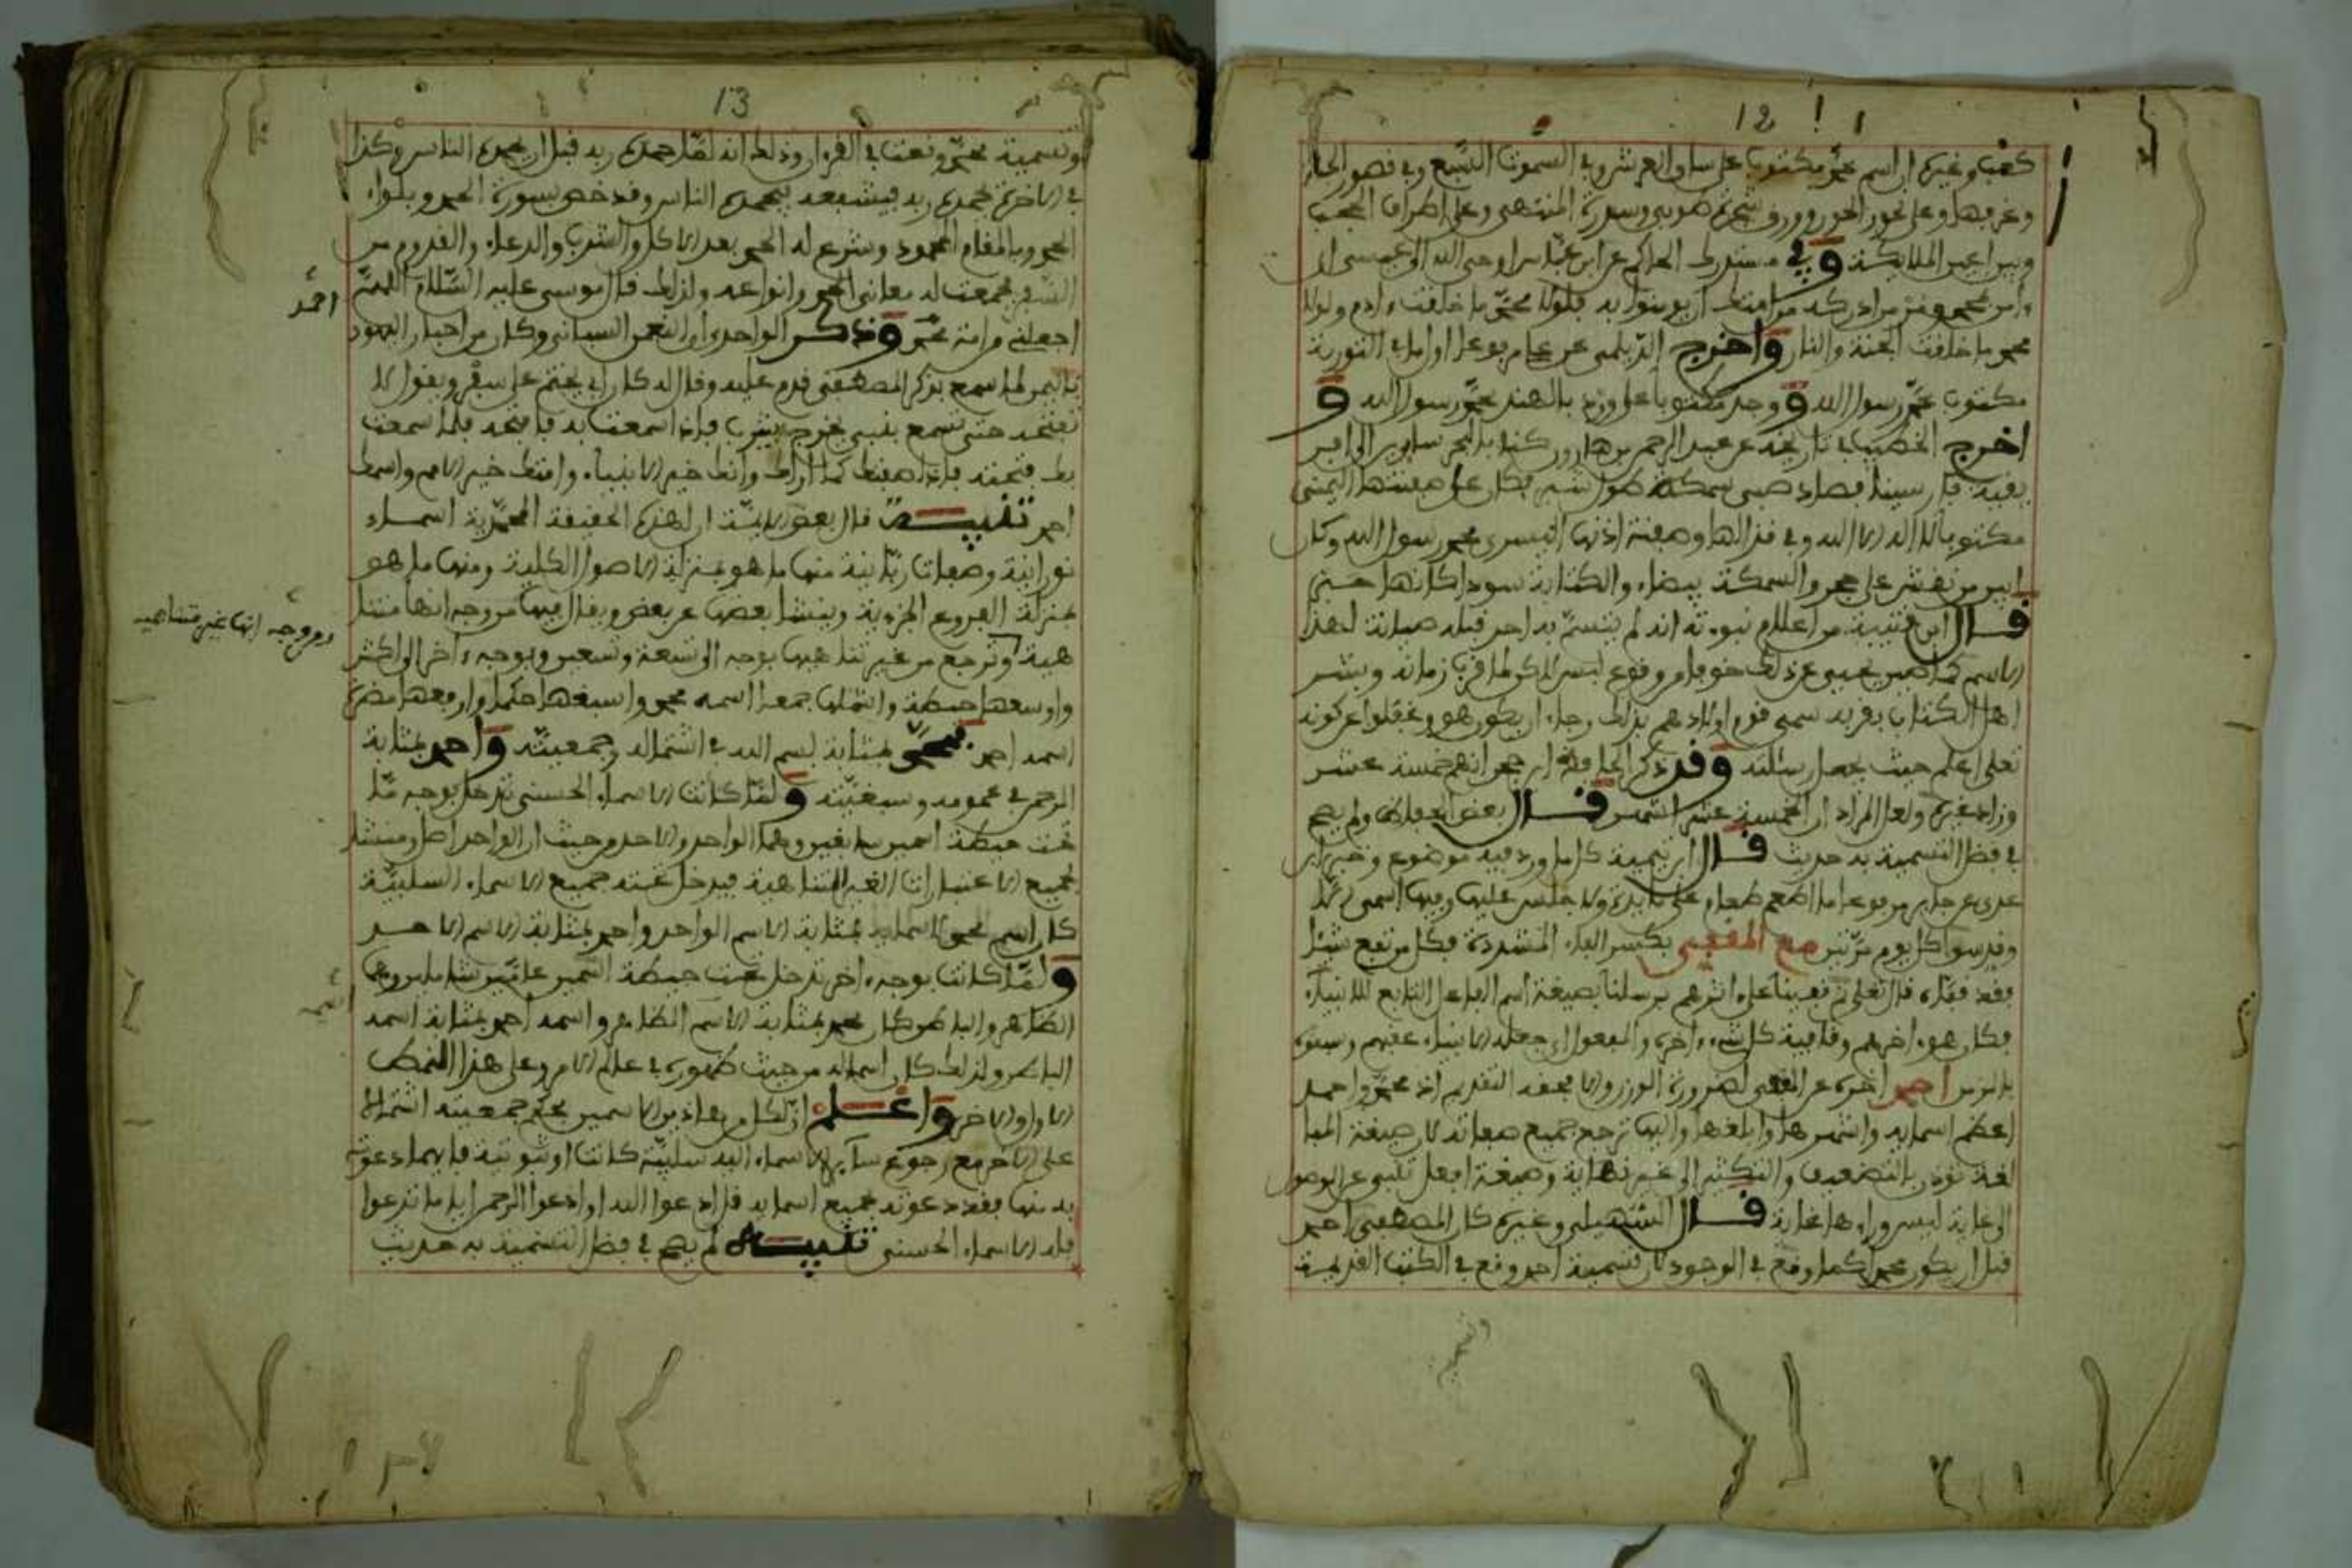 12
كعب وغيره ان اسم محمد مكتوب على ساق العرش وفي السموات السبع وفي قصور الجنة
وغرفها وعلى نحور الحور وورق شجرة طوبى وسدرة المنتهى وعلى اطراف الحجب
وبين اعين الملائكة وفي مستدرك الحاكم عن ابن عباس اوحى الله الى عيسى ان
ءامن بمحمد ومر من ادركه من امتك ان يومنوا به فلولا محمد ما خلقت ءادم ولولا
محمد ما خلقت الجنة والنار واخرج الديلمي عن مرفوعا اوا في التورية
مكتوب محمد رسول الله و وجد مكتوبا على ورد بالهند محمد رسول الله و
اخرج الخطيب في تاريخه عن عبد الرحمن بن هارون ركبنا بالبحر سايرين الى افر
يقية فارسينا فصاد صبي سمكة طول شبر فكان على صفحتها اليمنى
مكتوبا لا اله الا الله وفي قذالها وصفحة اذنها اليسرى محمد رسول الله وكان
ابين من نقش على حجر والسمكة بيضاء والكتابة سودا كانها حبر
قال ابن قتيبة من اعلام نبوته انه لم يتسم به احد قبله صيانة لهذا
الاسم كما صين يحيى عن ذلك خوفا من وقوع لبس لاكن لما قرب زمانه وبشر
اهل الكتاب بقربه سمى قوم اولادهم بذلك رجاء ان يكون هو وغفلوا عن كونه
تعلى اعلم حيث يجعل رسالته وقد ذكر الحافظ ابن حجر انهم خمسة عشر
وزاد غيره ولعل المراد ان الخمسة عشر اشهر قال بعض الحفاظ ولم يصح
في فضل التسمية به حديث قال ابن تيمية كل ما ورد فيه موضوع وخبر ابن
عدي عن جابر مرفوعا ما اطعم طعام على مايدة ولا جلس عليها وفيها اسمي الا
وقدسوا كل يوم مرتين مع المقفي بكسر الفاء المشددة فكل من تبع شيئا
فقد قفاه قال تعلى ثم قفينا على ءاثرهم برسلنا بصيغة اسم الفاعل التابع للانبياء
فكان هو ءاخرهم وقافية كل شيء ءاخره والمفعول اي جعله الانبياء عقبهم وسبق
بالزمن احمد اخره عن المقفى لضرورة الوزن والا فحقه التقديم اذ محمد واحمد
اعظم اسمايه واشهرها وابلغها واليها ترجع جميع صفاته لان صيغة المبا
لغة توذن بالتضعيف والتكثير الى غير نهاية وصيغة افعل تنبي عن الوصول
الى غاية ليس وراءها غاية قال السهيلي وغيره كان المصطفى احمد
قبل ان يكون محمدا كما وقع في الوجود لان تسمية احمد وقع في الكتب القديمة
وتسميته
13
وتسمية محمد وقعت في القرءان وذلك انه لما حمده ربه قبل ان يحمده الناس وكذا
في الاخرة يحمد ربه فيشفعه فيحمده الناس وقد خص بسورة الحمد وبلواء
الحمد وبالمقام المحمود وشرع له الحمد بعد الاكل والشرب والدعاء والقدوم من
السفر فجمعت له معاني الحمد وانواعه ولذلك قال موسى عليه السلام اللهم
اجعلني من امة محمد وذكر الواحدي ان النعمن السبائي وكان من احبار اليهود
باليمن لما سمع بذكر المصطفى قدم عليه وقال له كان ابي يختم على سفر ويقول لا
تفتحه حتى تسمع بنبي يخرج بيثرب فاذا سمعت به فافتحه فلما سمعت
بك فتحته فاذا صفتك كما اراك وانك خير الانبياء وامتك خير الامم واسمك
احمد تنبيه قال بعض الايمة ان لهذه الحقيقة المحمدية اسماء
نورانية وصفات ربانية منها ما هو بمنزلة الاصول الكلية ومنها ما هو
بمنزلة الفروع الجزوية وينشا بعضها عن بعض ويقال فيها من وجه انها متنا
هية وترجع من غير تناهيها بوجه الى تسعة وتسعين وبوجه ءاخر الى اكثر
واوسعها حيطة واشملها جمعا اسمه محمد واسبغها حكما وارفعها
اسمه احمد فمحمد بمثابة اسم الله في اشتماله وجمعيته واحمد بمثابة
الرحمن في عمومه وسبقيته ولما كانت الاسماء الحسنى تدخل بوجه ما
تحت حيطة اسمين سابقين وهما الواحد والاحد من حيث ان الواحد اصل ومنشا
لجميع الاعتبارات الغير المتناهية فيدخل تحته جميع الاسماء السلبية
كان اسم محمد لاسمايه بمثابة الاسم الواحد واحمد بمثابة الاسم الاحد
ولما كانت بوجه ءاخر تدخل تحت حيطة اسمين عامين شاملين وهما
الظاهر والباطن كان محمد بمثابة الاسم الظاهر واسمه احمد بمثابة اسمه
الباطن ولذلك كان اسما له من حيث ظهوره في عالم الامر وعلى هذا النمط
الاول والاخر واعلم ان لكل من هاذين الاسمين بحكم جمعيته اشتمالا
على الاخر مع رجوع ساير الاسماء اليه سلبية كانت او ثبوتية فايهما دعوته
به منها فقد دعوته بجميع اسمايه قل ادعوا الله او ادعوا الرحمن ايا ما تدعوا
فله الاسماء الحسنى تنبيه لم يصح في فضل التسمية به حديث
احمد
ومن وجه انها غير متناهية